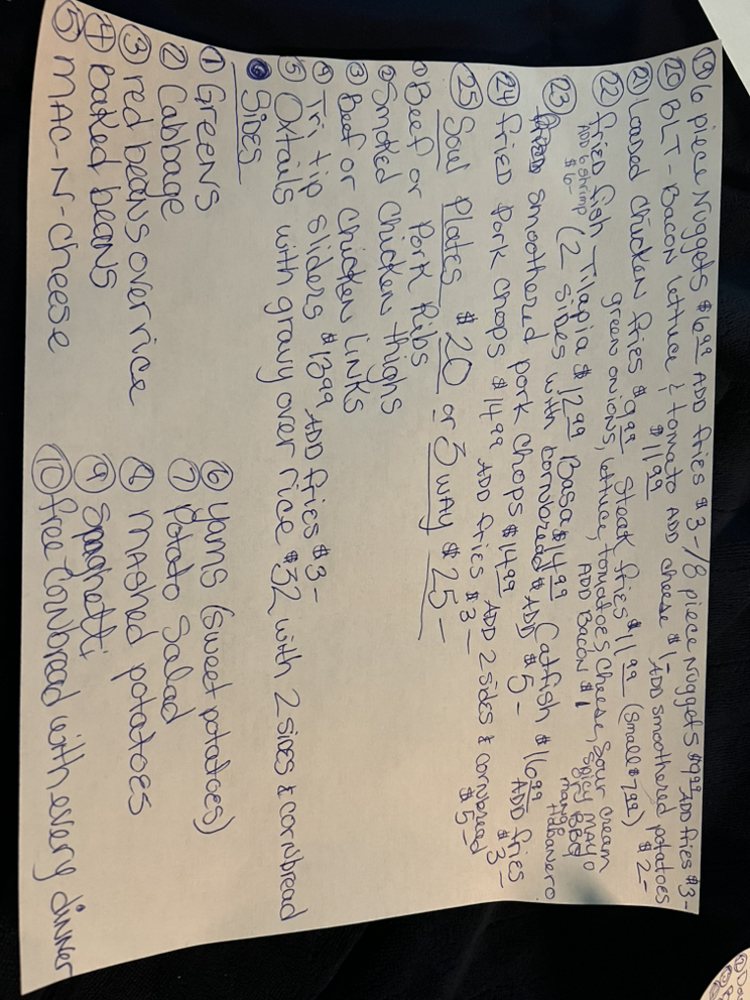 ⑲ 6 piece Nuggets $6.99 ADD fries $3-/8 piece Nuggets $9.99 ADD fries $3-
⑳ BLT-Bacon lettuce & tomato ADD cheese $1,- ADD smoothered potatoes
$11.99 $2-
㉑ Loaded chicken fries $9.99 Steak fries $11.99 (small $7.99)
green onions, lettuce, tomatoes, cheese, sour cream
㉒ fried fish Tilapia $12.99 Basa $14.99 Catfish $16.99 ADD fries $3-
ADD Bacon $1 spicy mayo BBQ mango Habanero
ADD 6 shrimp $6- (2 sides with cornbread ADD $5-
㉓ smoothered pork chops $14.99 ADD 2 sides & cornbread $5-
㉔ fried pork chops $14.99 ADD fries $3-
㉕ Soul Plates $20 or 3 way $25-
① Beef or Pork Ribs
② Smoked chicken thighs
③ Beef or chicken links
④ Tri tip sliders $13.99 ADD fries $3-
⑤ Oxtails with gravy over rice $32 with 2 sides & cornbread
⑥ Sides
① Greens
② Cabbage
③ red beans over rice
④ baked beans
⑤ MAC-N-cheese
⑥ yams (sweet potatoes)
⑦ potato salad
⑧ mashed potatoes
⑨ spaghetti
⑩ free cornbread with every dinner